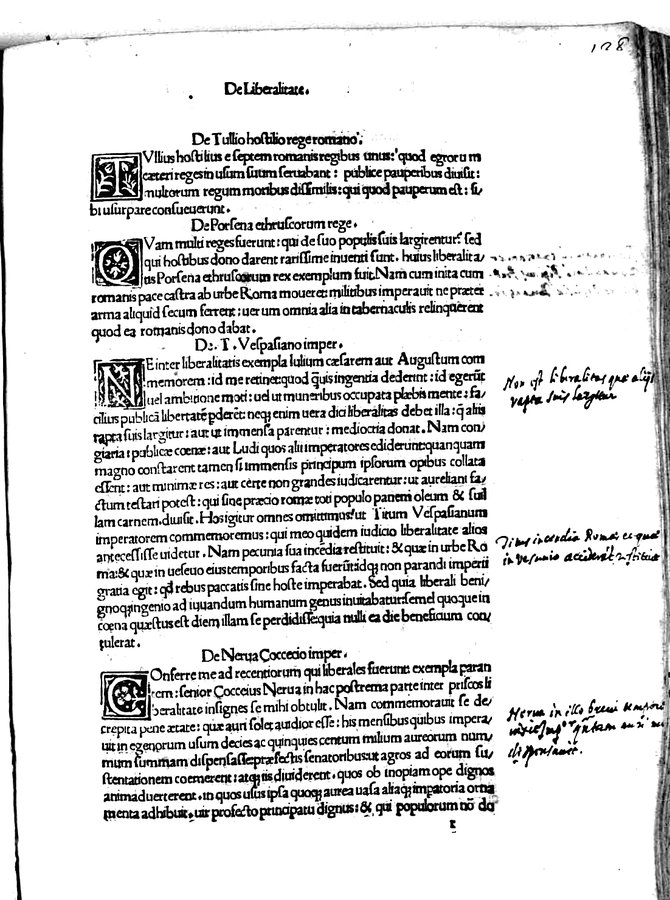 128
De Liberalitate.
De Tullio hostilio rege romano.
TVllius hostilius e septem romanis regibus unus: quod egrorum
cæteri reges in usum suum seruabant: publice pauperibus diuisit:
multorum regum moribus dissimilis: qui quod pauperum est: si/
bi usurpare consueuerunt.
De Porsena ethruscorum rege.
QVam multi reges fuerunt: qui de suo populis suis largirentur: sed
qui hostibus dono darent rarissime inuenti sunt. huius liberalita/
tis Porsena ethruscorum rex exemplum fuit. Nam cum inita cum
romanis pace castra ab urbe Roma moueret: militibus imperauit ne præter
arma aliquid secum ferrent: uerum omnia alia in tabernaculis relinquerent
quod ea romanis dono dabat.
De. T. Vespasiano imper.
NE inter liberalitatis exempla Iulium cæsarem aut Augustum com
memorem: id me retinet: quod q̃uis ingentia dederint: id egerūt
uel ambitione moti: uel ut muneribus occupata plæbis mente: fa/
cilius publicā libertatē p̱derēt: neq; enim uera dici liberalitas debet illa: q̄ aliis
rapta suis largitur: aut ut immensa parentur: mediocria donat. Nam con/
giaria: publicæ coenæ: aut Ludi quos alii imperatores ediderunt: quanquam
magno constarent tamen si immensis principum ipsorum opibus collata
essent: aut minimæ res: aut certe non grandes iudicarentur: ut aureliani fa/
ctum testari potest: qui sine præcio romæ toti populo panem oleum & suil
lam carnem diuisit. Hos igitur omnes omittimus: ut Titum Vespasianum
imperatorem commemoremus: qui meo quidem iudicio liberalitate alios
antecessisse uidetur. Nam pecunia sua incēdia restituit: & quæ in urbe Ro
ma: & quæ in ueseuo eius temporibus facta fuerūt: idq; non parandi imperii
gratia egit: qđ rebus paccatis sine hoste imperabat. Sed quia liberali beni/
gnoq; ingenio ad iuuandum humanum genus inuitabatur: semel quoque in
coena quæstus est diem illam se perdidisse: quia nulli ea die beneficium con/
tulerat.
De Nerua Coccecio imper.
COnferre me ad recentiorum qui liberales fuerunt: exempla paran
tem: senior Cocceius Nerua in hac postrema parte inter priscos li
beralitate insignes se mihi obtulit. Nam commemorauit se de/
crepita pene ætate: quæ auri solet auidior esse: his mensibus quibus impera/
uit in egenorum usum decies ac quinquies centum milium aureorum num/
mum summam dispensasse: præfectis senatoribus: ut agros ad eorum su/
stentationem coemerent: atq; iis diuiderent. quos ob inopiam ope dignos
animaduerterent. in quos usus ipsa quoq; aurea uasa aliaq; impatoria orna
menta adhibuit. uir profecto principatu dignus: & qui populorum nō de
r
Non est liberalitas quæ aliis
rapta suis largitur
Titus incendia Romæ et quæ
in vesuuio acciderāt restituit
Nerua in illo breui tempore